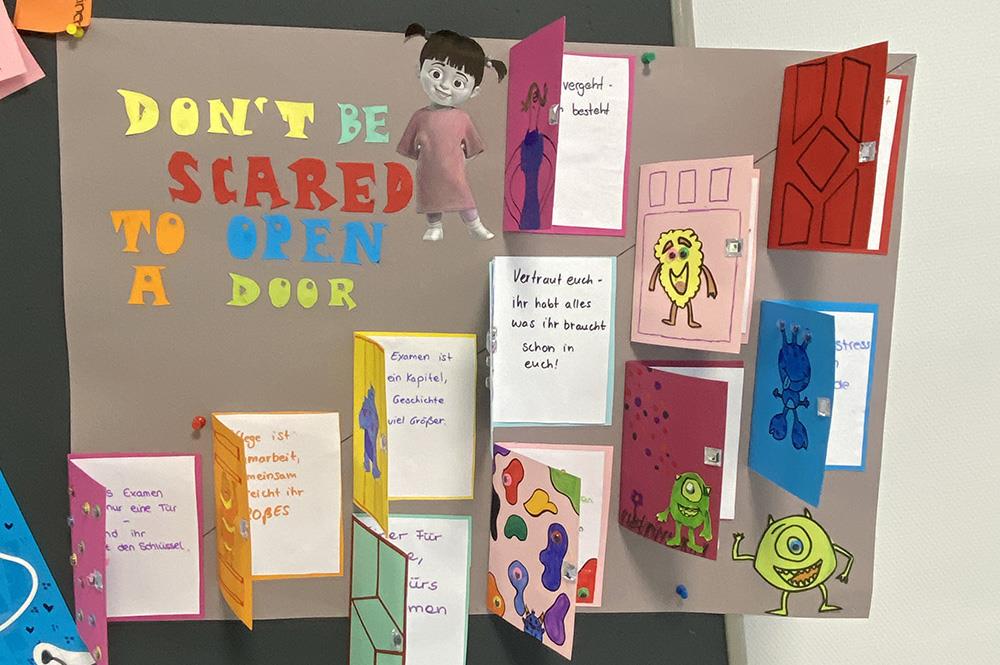 DON'T BE
SCARED
TO OPEN
A DOOR
vergeht -
besteht
Vertraut euch -
ihr habt alles
was ihr braucht
schon in
euch!
Examen ist
ein Kapitel,
Geschichte
viel Größer.
ist
marbeit,
meinsam
reicht ihr
ROßES
s Examen
nur eine Tür
-
nd ihr
t den Schlüssel
er Für
e,
ürs
men
stress
de
en